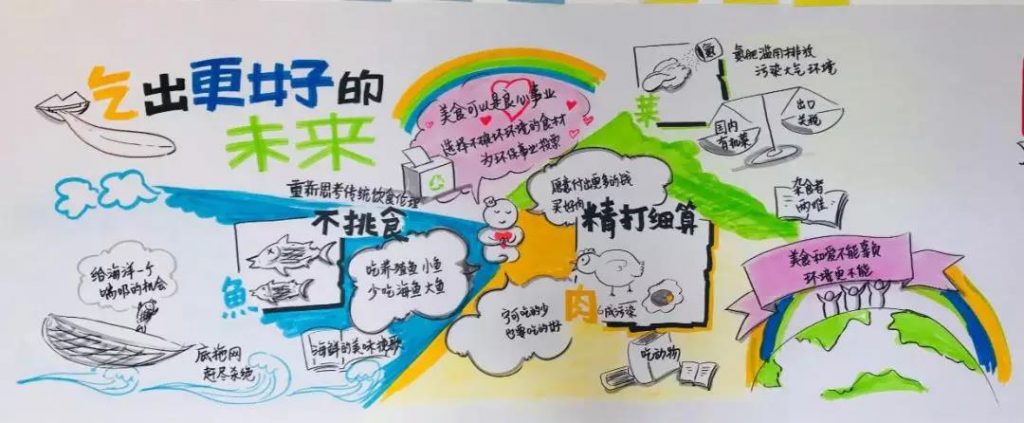 吃出更好的
未来
重新思考传统饮食伦理
美食可以是良心事业
选择不破坏环境的食材
为环保事业投票
氮
氮肥滥用排放
污染大气环境
菜
国内
有机菜
出口
杂食者
两难
不挑食
给海洋一个
喘息的机会
魚
吃养殖鱼小鱼
少吃海鱼大鱼
底拖网
赶尽杀绝
海鲜的美味挽歌
愿意付出更多的钱
买好肉
精打细算
肉
宁可吃的少
也要吃的好
吃动物
美食和爱不能辜负
环境更不能